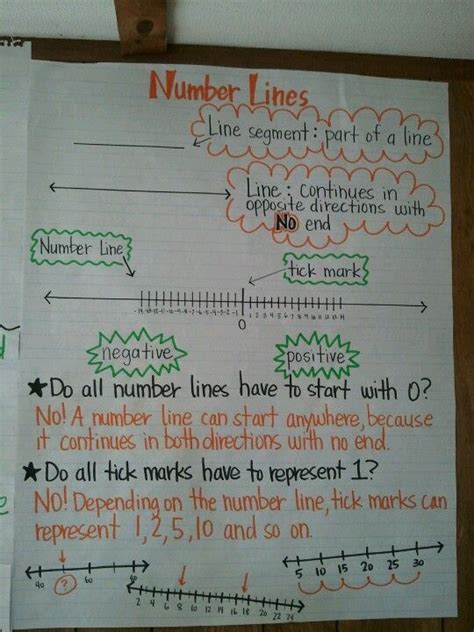 Number Lines
Line segment: part of a line
Line: Continues in
opposite directions with
No end
Number Line
tick mark
0 1 2 3 4 5 6 7 8 9 10
negative
positive
★Do all number lines have to start with 0?
No! A number line can start anywhere, because
it continues in both directions with no end.
★Do all tick marks have to represent 1?
NO! Depending on the number line, tick marks can
represent 1, 2, 5, 10 and so on.
40 ? 60
5 10 15 20 25 30
2 4 6 8 10 12 14 16 18 20 22 24